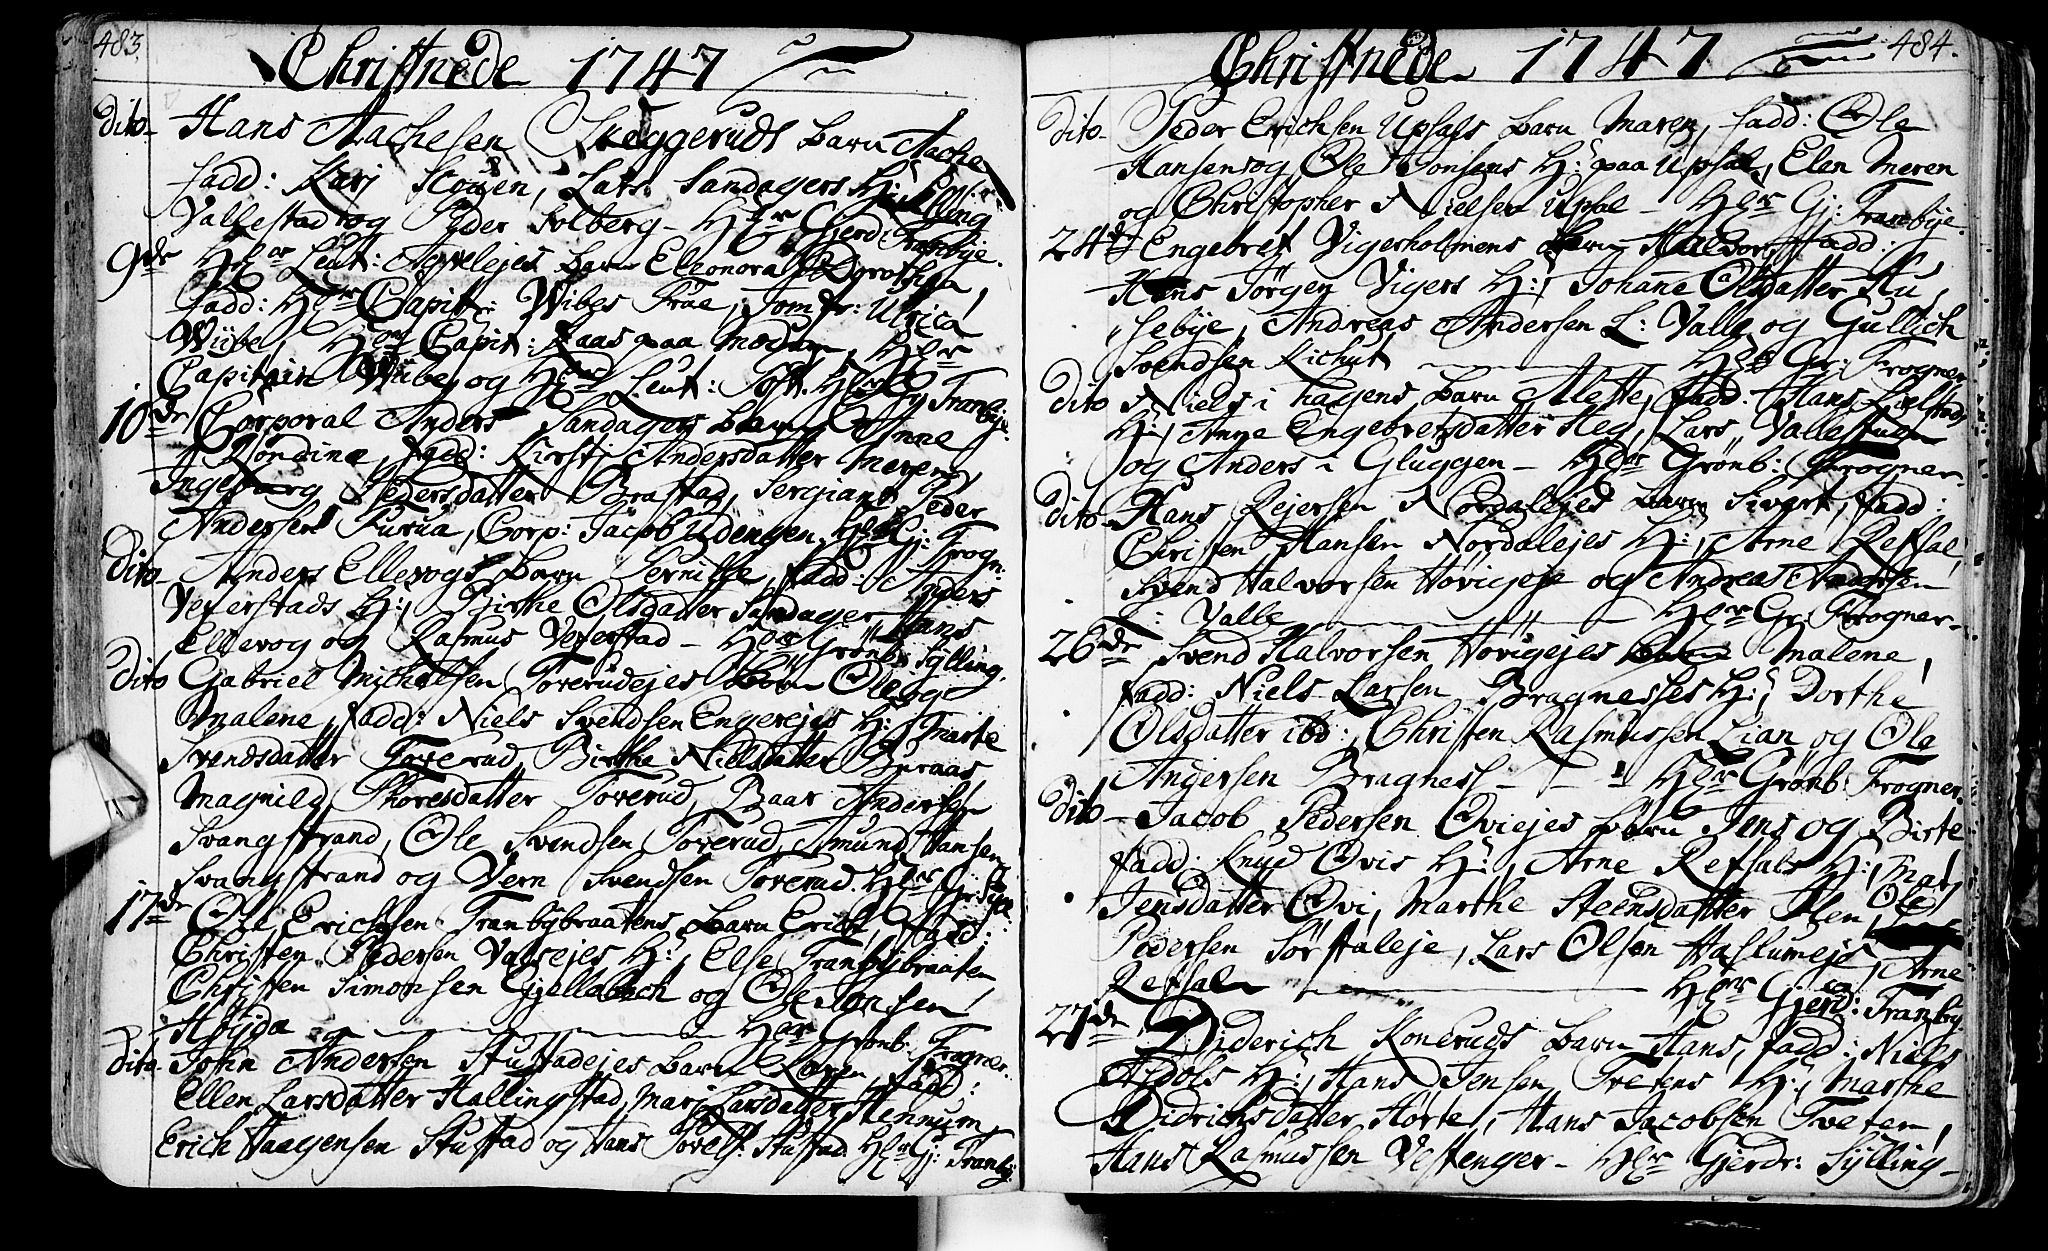 483.
Christnede 1747
dito- Hans Aachesen Skeggeruds barn Aache
fadd: Karj Scougen, Lars Sandagers H:
Vallestad og Peder Solberg - Hlr Gjerd: Tranbye.
9de Hlr Leut: Appelejes barn Eleonora Dorothea,
fadd: Hlr Capit: Wibes Frue, Jomfr: Ulrica
Wiibe, Hlr Capit: Kaas paa Modum, Hlr
Capitain Wibe, og Hlr Leut: Toft. Hlr G Tranbye.
10de Corporal Anders Sandagers barn Anne
Rondine, fadd: Kirsti Andersdatter Meren,
Ingeborg Pedersdatter Brastad, Sergiant Peder
Andersen Furua, Corp: Jacob Udengen. Hlr G: Frogn:
dito- Anders Ellevogs barn Pernille, fadd: Anders
Vefferstads H:, Birthe Olsdatter Sandager Hans
Ellevog og Rasmus Vefferstad - Hlr Grönb: Sylling.
dito Gabriel Michelsen Toverudejes barn Ole og
Malene, fadd: Niels Svendsen Engerejes H: Marte
Svendsdatter Toverud, Birthe Nielsdatter Buraas,
Magnild Thoresdatter Toverud, Baar Andersen
Svangstrand, Ole Svendsen Toverud, Amund Hansen
Svangstrand og Vern Svendsen Toverud. Hlr Gr: Syll:
17de Ole Erichsen Tranbybraatens barn Erich, fadd:
Christen Pedersen Valsejes H:, Else Tranbybraaten
Christen Simonsen Gjellebech og Ole Jonsen
Höyda - Hlr Grönb: Frogner.
dito- John Andersen Stustadejes barn Karen, fadd:
Ellen Larsdatter Hallingstad, Marj Larsdatter Hennum,
Erich Haagensen Stustad og Hans Povels: Stustad Hlr G: Tranbÿ:
484.
Christnede 1747
dito- Peder Erichsen Upsals barn Maren, fadd: Ole
Hansens og Ole Jonsens H: paa Upsal, Elen Meren
og Christopher Nielsen Upsal - Hlr Gj: Tranbye.
24de Engebret Vigersholmens barn Halvor, fadd:
Hans Jörgen Vigers H:, Johanne Olsdatter Hu,
sebye, Andreas Andersen L: Valle og Gullich
Svendsen Kichut - Hlr Gr: Frogner
dito Niels i hagens barn Alette, fadd: Hans Lielstads
H:, Anne Engebretsdatter Heg, Lars Vallestuen
og Anders i Gluggen - Hlr Grönb: Frogner.
dito- Hans Rejersen Nordalejes barn Sivert, fadd:
Christen Hansen Nordalejes H:, Arne Refsal,
Svend Halvorsen Hövigeje og Andreas Andersen
L: Valle - Hlr Gr: Frogner-
26de Svend Halvorsen Hövigejes barn Malene,
fadd: Niels Larsen Bragnesses H:, Dorthe
Olsdatter ibd:, Christen Rasmussen Lian og Ole
Andersen Bragness - Hlr Grönb: Frogner.
dito- Jacob Pedersen Oviejes barn Jens og Birte
fadd: Knud Ovis H:, Arne Refsals H:, Marj
Jensdatter Ovi, Marthe Steensdatter Ulen, Ole
Pedersen Sörstaleje, Lars Olsen Haslumejs, Arne
Refsal - Hlr Gjerd: Tranby.
27de Diderich Koneruds barn Hans, fadd: Niels
H:, Hans Jensen Tvetens H:, Marthe
Didrichsdatter Hörte, Hans Jacobsen Tveten,
Hans Rasmussen Vestenger - Hlr Gjerdr: Sÿlling-